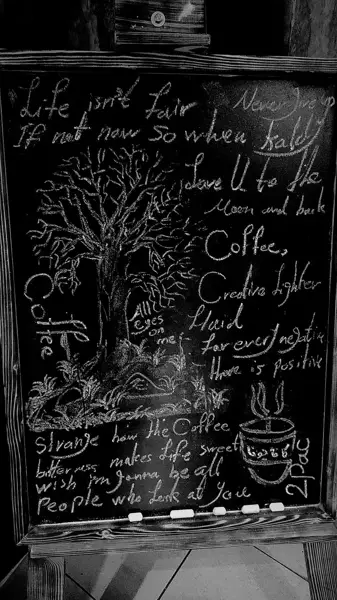 Life isn't fair
Never give up
If not now so when
Kaldy
Love U to the
Moon and back
Coffee,
Creative Lighter
Coffee
All
eyes
on
me!
for every negative
there is positive
Strange how the Coffee
bitterness makes life sweet
wish i'm gonna be all
People who look at You
2pac